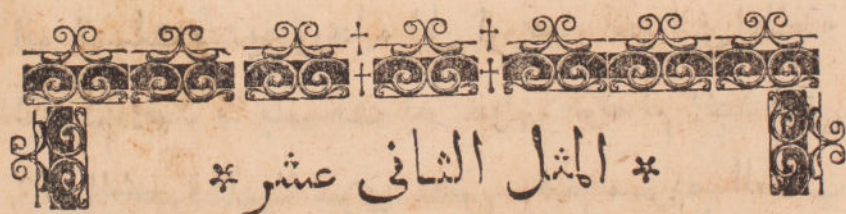 * المثل الثانى عشر *